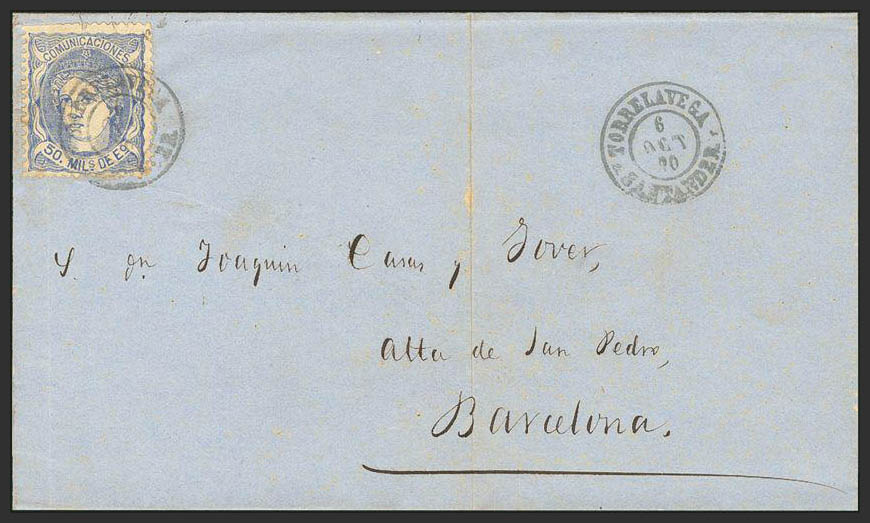 COMUNICACIONES
50. MILS DE EO
TORRELAVEGA
6
OCT
70
SANTANDER
S. Dn. Joaquin Casas y Jover,
Alta de San Pedro,
Barcelona.